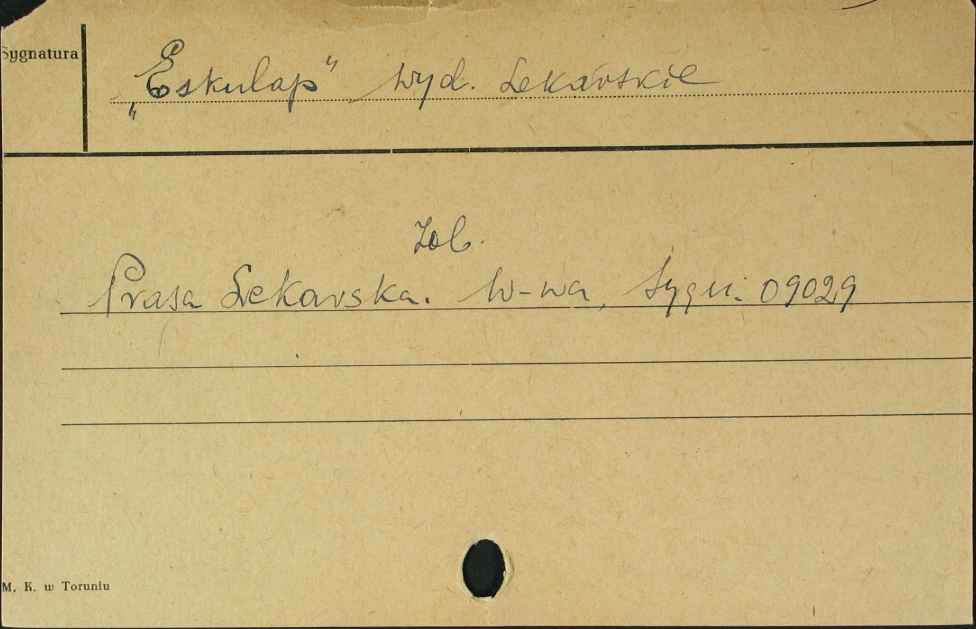 Sygnatura
„Eskulap" wyd. Lekarskie
Zob.
Prasa Lekarska. W-wa, Sygn. 09029
M. K. w Toruniu